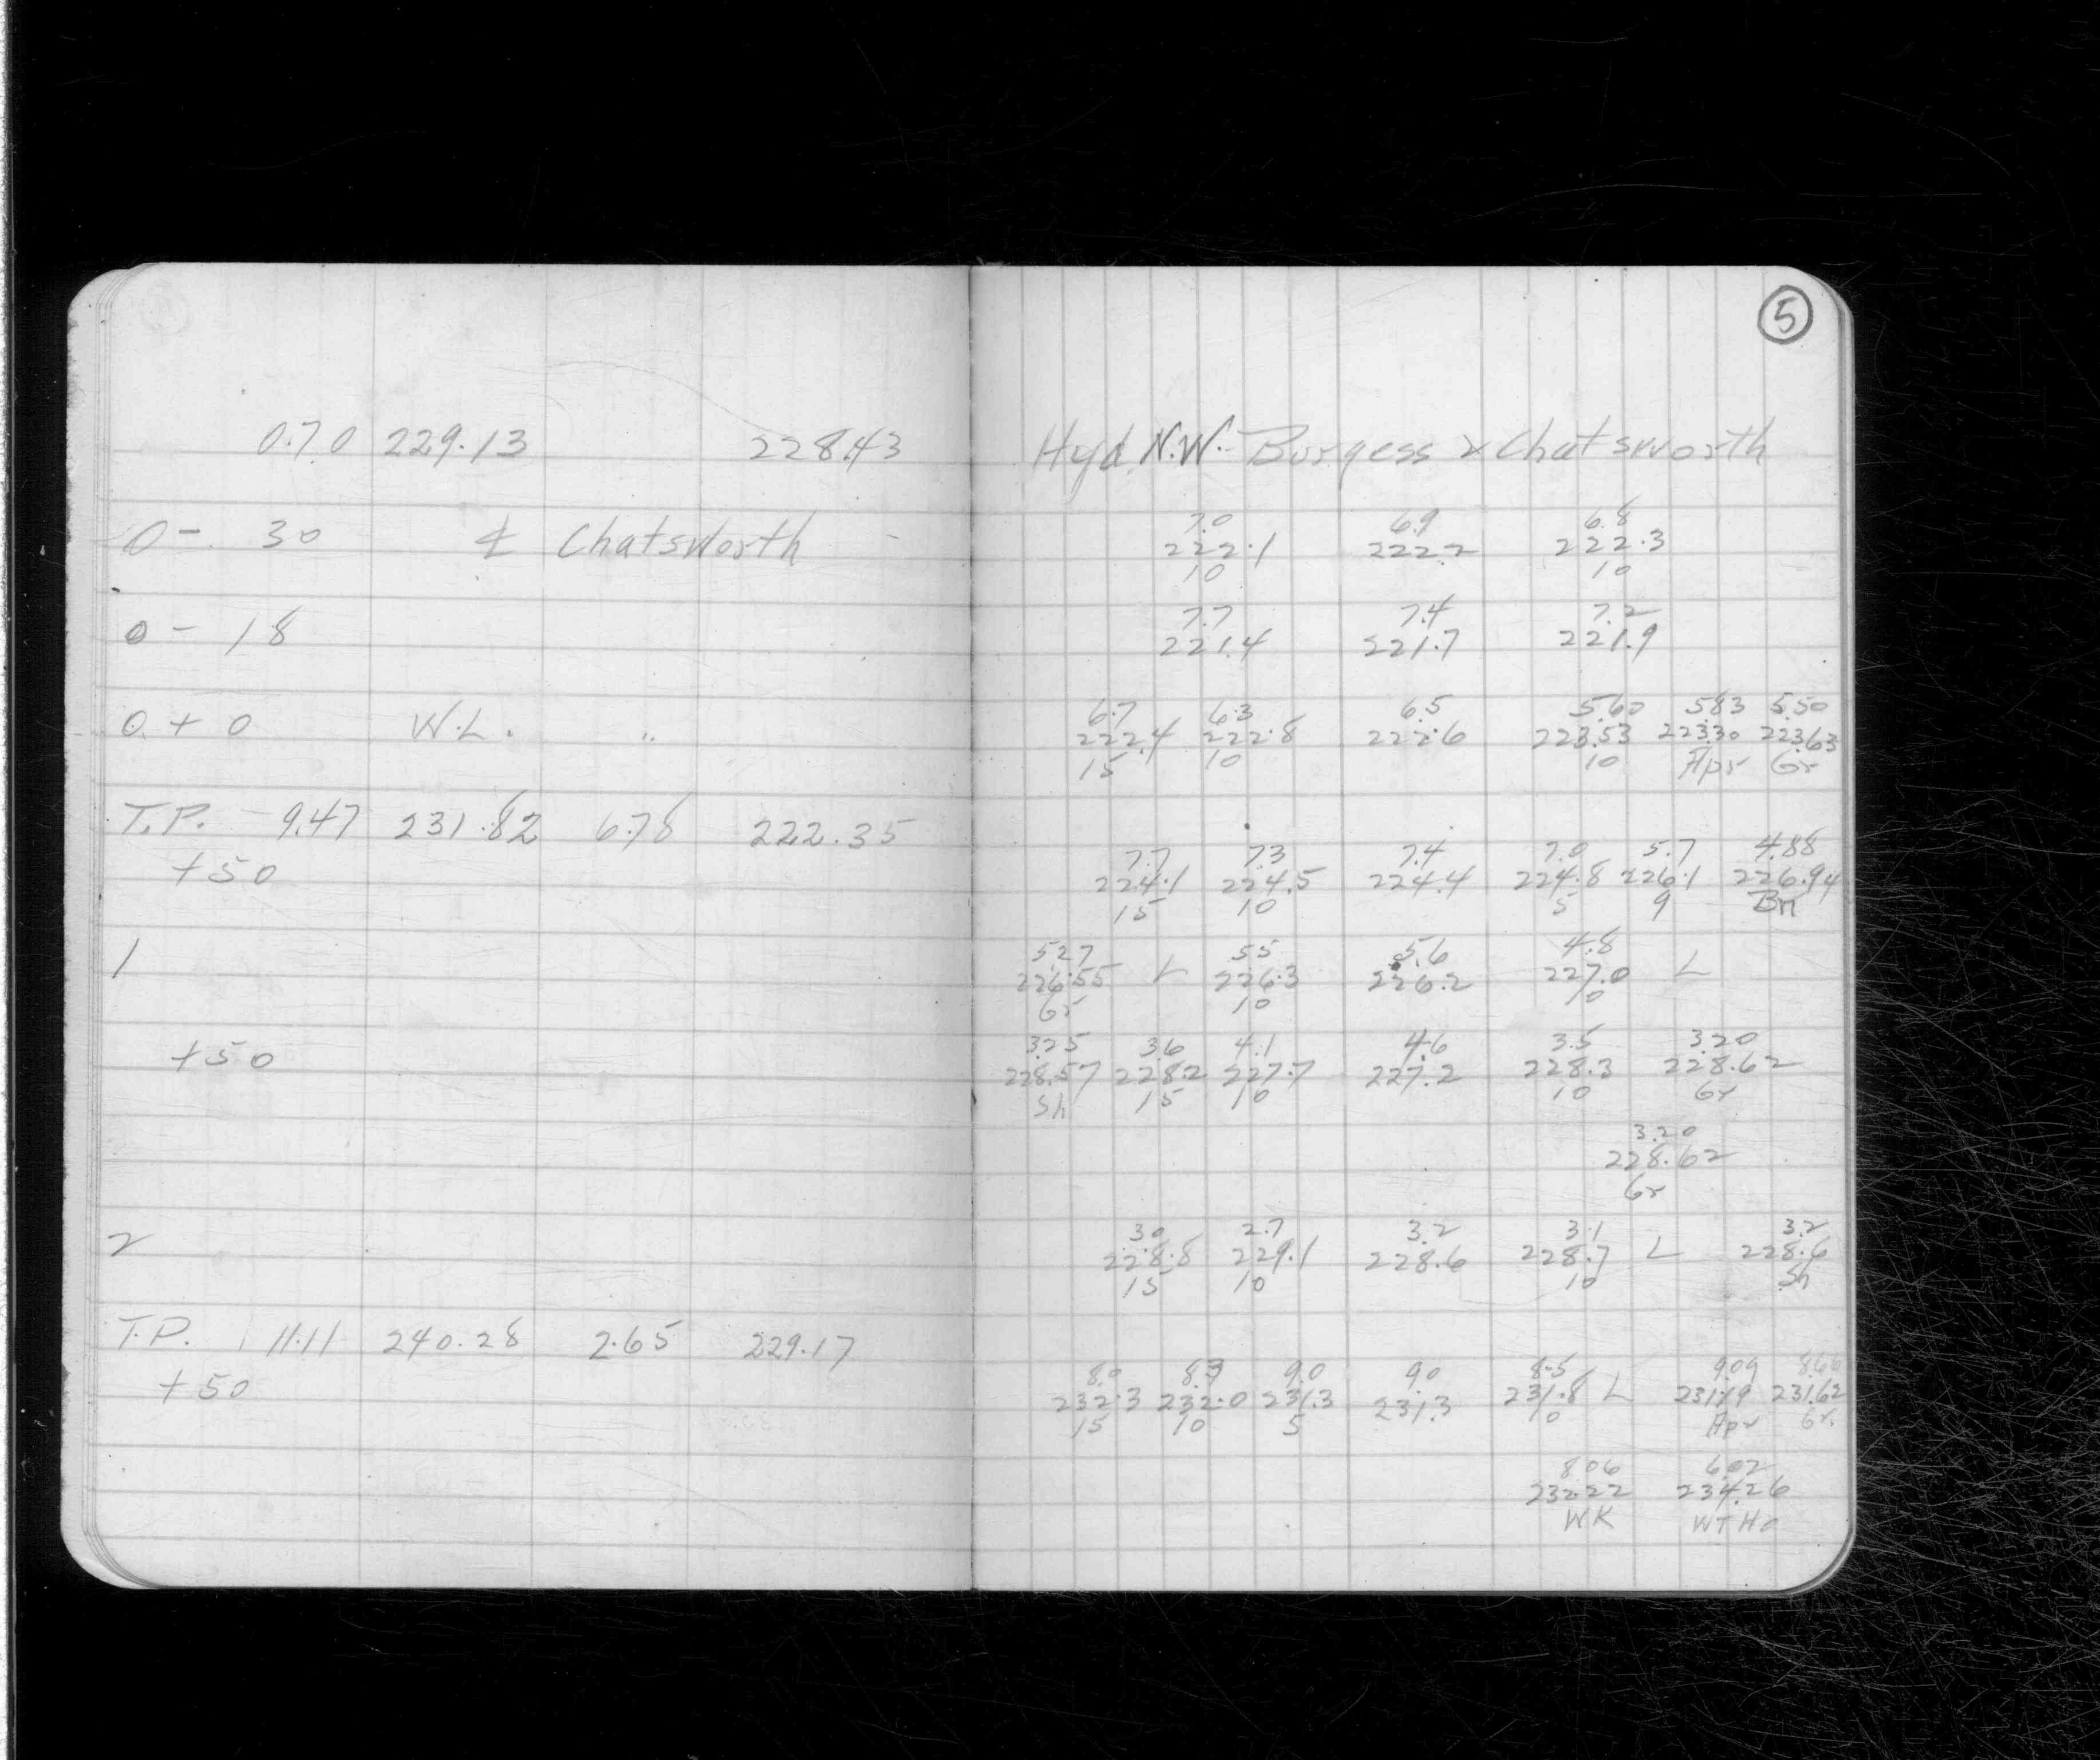 5
0.70 229.13 228.43 Hyd. N.W. Burgess & Chatsworth
7.0 6.9 6.8
0 - 30 ℄ Chatsworth 222.1 222.2 222.3
10 10
7.7 7.4 7.2
0 - 18 221.4 221.7 221.9
6.7 6.3 6.5 5.60 5.83 5.50
0 + 0 W.L. " 222.4 222.8 222.6 223.53 223.30 223.63
15 10 10 Apr Gr
T.P. 9.47 231.82 6.78 222.35
7.7 7.3 7.4 7.0 5.7 4.88
+50 224.1 224.5 224.4 224.8 226.1 226.94
15 10 5 9 Bn
5.27 5.5 5.6 4.8
1 226.55 L 226.3 226.2 227.0 L
Gr 10 10
3.25 3.6 4.1 4.6 3.5 3.20
+50 228.57 228.2 227.7 227.2 228.3 228.62
Sh 15 10 10 Gr
3.20
228.62
Gr
3.0 2.7 3.2 3.1 3.2
2 228.8 229.1 228.6 228.7 L 228.6
15 10 10 Sh
T.P. 11.11 240.28 2.65 229.17
8.0 8.3 9.0 9.0 8.5 9.09 8.66
+50 232.3 232.0 231.3 231.3 231.8 L 231.19 231.62
15 10 5 10 Apr Gr.
8.06 6.02
232.22 234.26
WK WT Ho